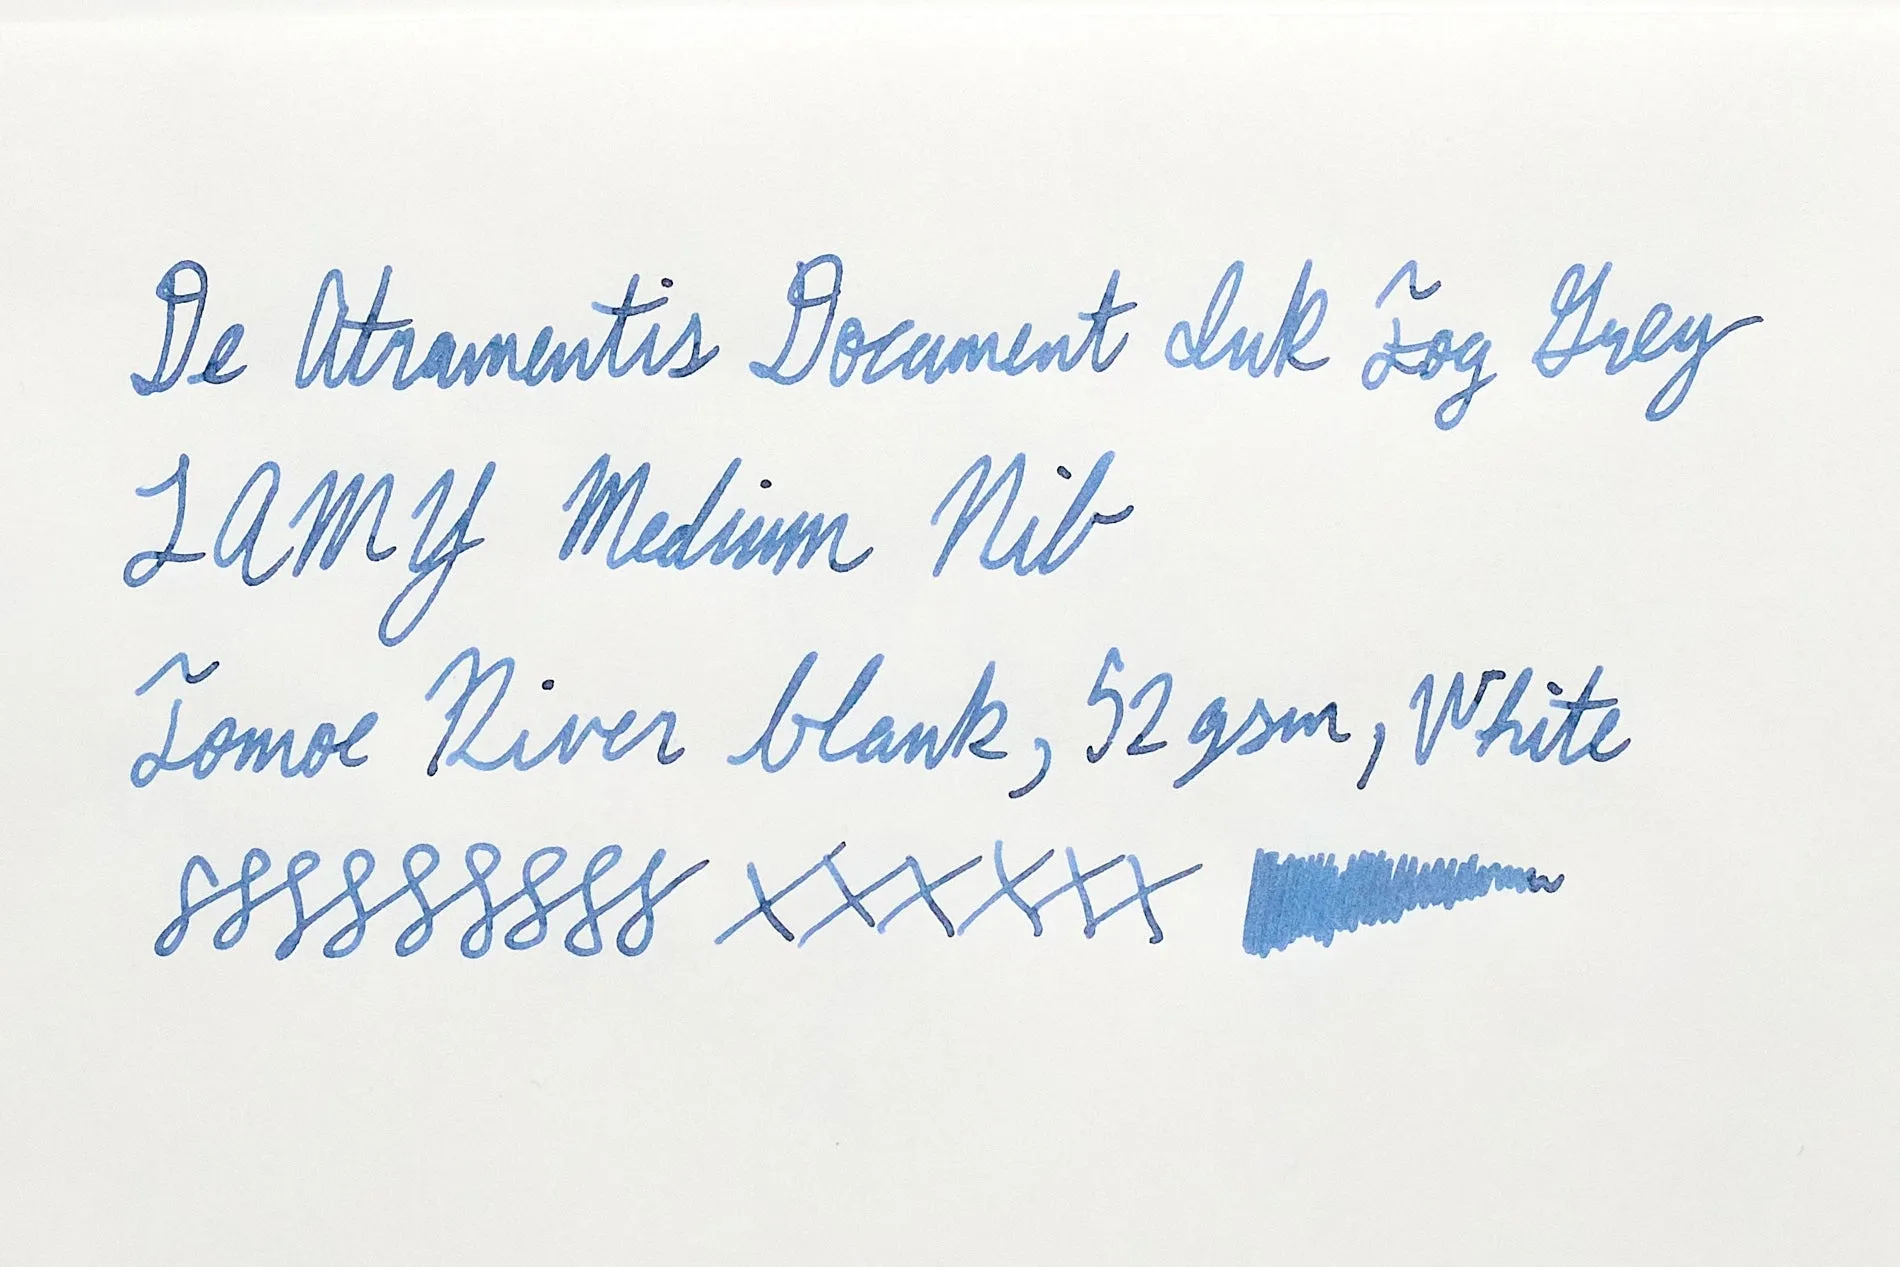 De Atramentis Document Ink Fog Grey
LAMY Medium Nib
Tomoe River blank, 52gsm, White